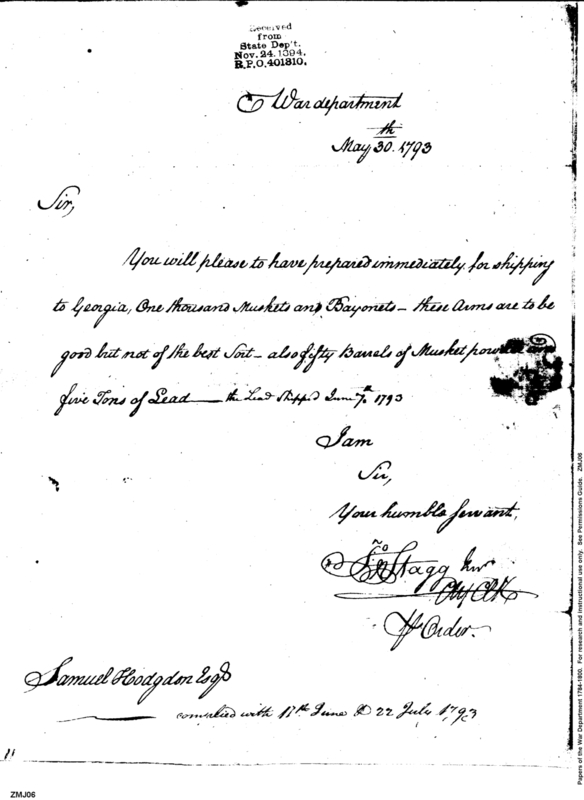 Received
from
State Dep't.
Nov. 24. 1894.
R.P.O. 401810.
War department
May 30.th 1793
Sir,
You will please to have prepared immediately for shipping
to Georgia, One thousand Muskets and Bayonets – these Arms are to be
good but not of the best Sort – also fifty Barrels of Musket powder and
five Tons of Lead — the Lead Shipp'd June 7.th 1793
I am
Sir,
Your humble Servant,
Jno Stagg Junr
Chf Clk
Pr Order.
Samuel Hodgdon Esqr
complied with 17th June & 22 July 1793
Papers of the War Department 1784-1800. For research and instructional use only. See Permissions Guide. ZMJ06
ZMJ06